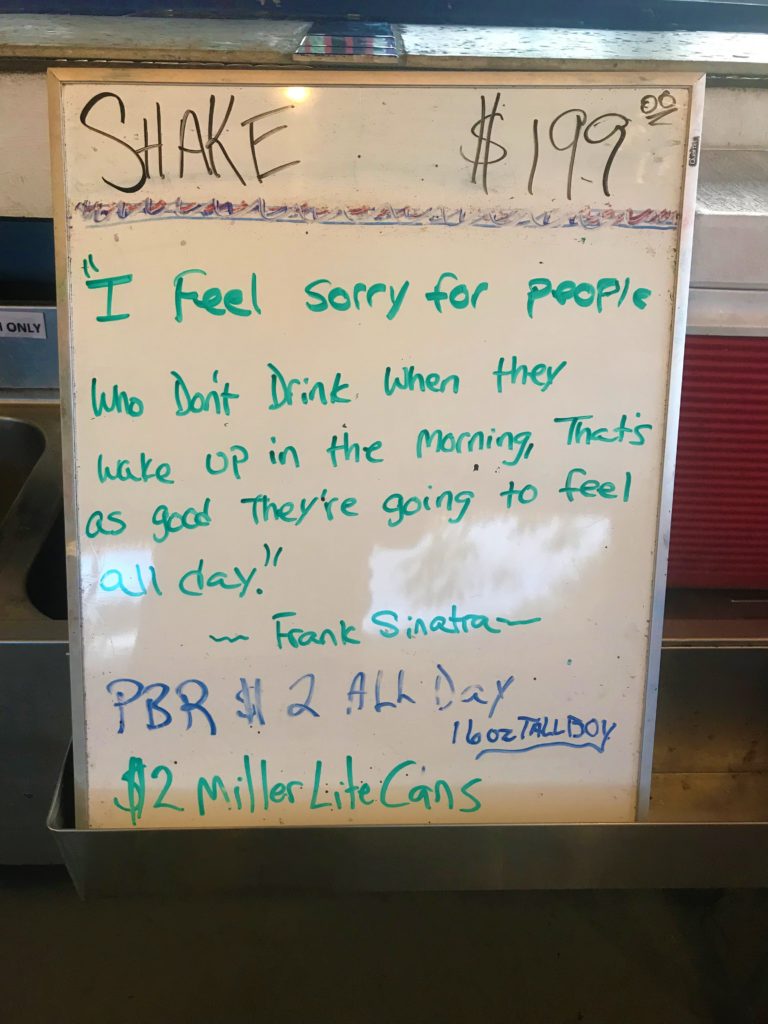 SHAKE $199.00
"I Feel sorry for people
Who Don't Drink when they
wake up in the morning, That's
as good They're going to feel
all day."
~ Frank Sinatra ~
PBR $2 ALL Day
16oz TALL BOY
$2 Miller Lite Cans
ONLY